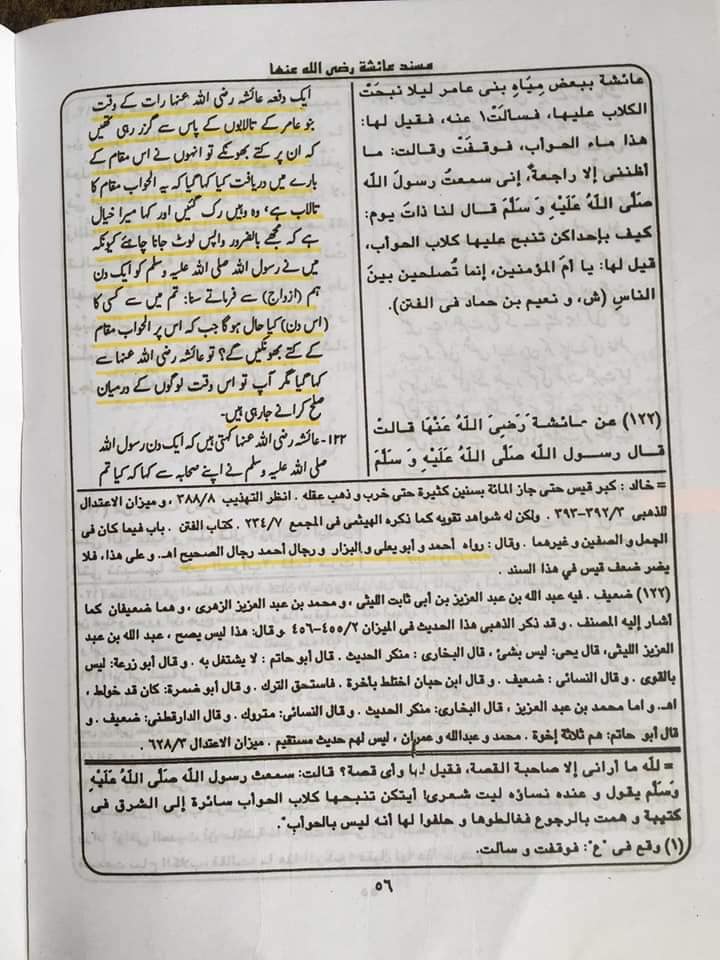 مسند عائشة رضى الله عنها
عائشة ببعض مِيَاهِ بنى عامر ليلا نبحَتْ
الكلاب عليها، فسالَتْ١ عنه، فقيل لها:
هذا ماء الحوأب، فوقفَتْ وقالت: ما
أظننى إلا راجعةً، إنى سمعتُ رسولَ الله
صَلَّى اللهُ عَلَيْهِ وَ سَلَّمَ قال لنا ذاتَ يوم:
كيف بإحداكن تنبح عليها كلاب الحوأب،
قيل لها: يا أمَّ المؤمنين، إنما تُصلحين بينَ
الناسِ (ش، و نعيم بن حماد فى الفتن).
(١٢٢) عن عائشة رَضِىَ اللهُ عَنْهَا قالت
قال رسول الله صَلَّى اللهُ عَلَيْهِ وَ سَلَّمَ
ایک دفعہ عائشہ رضی اللہ عنہا رات کے وقت
بنو عامر کے تالابوں کے پاس سے گزر رہی تھیں
کہ ان پر کتے بھونکے تو انہوں نے اس مقام کے
بارے میں دریافت کیا کہا گیا کہ یہ الحواب مقام کا
تالاب ہے، وہ وہیں رک گئیں اور کہا میرا خیال
ہے کہ مجھے بالضرور واپس لوٹ جانا چاہئے کیونکہ
میں نے رسول اللہ صلی اللہ علیہ وسلم کو ایک دن
ہم (ازواج) سے فرماتے سنا: تم میں سے کسی کا
(اس دن) کیا حال ہوگا جب کہ اس پر الحواب مقام
کے کتے بھونکیں گے؟ تو عائشہ رضی اللہ عنہا سے
کہا گیا مگر آپ تو اس وقت لوگوں کے درمیان
صلح کرانے جارہی ہیں۔
۱۲۲- عائشہ رضی اللہ عنہا کہتی ہیں کہ ایک دن رسول اللہ
صلی اللہ علیہ وسلم نے اپنے صحابہ سے کہا کہ کیا تم
= خالد : كبر قيس حتى جاز المائة بسنين كثيرة حتى خرب و ذهب عقله . انظر التهذيب ٣٨٨/٨ ، و ميزان الاعتدال
للذهبى ٣٩٢/٣-٣٩٣ . ولكن له شواهد تقويه كما ذكره الهيثمى فى المجمع ٢٣٤/٧ . كتاب الفتن . باب فيما كان فى
الجمل و الصفين و غيرهما . وقال : رواه أحمد و أبو يعلى و البزار و رجال أحمد رجال الصحيح اهـ. و على هذا، فلا
يضر ضعف قيس في هذا السند .
(١٢٢) ضعيف . فيه عبد الله بن عبد العزيز بن أبى ثابت الليثى ، و محمد بن عبد العزيز الزهرى ، و هما ضعيفان كما
أشار إليه المصنف . و قد ذكر الذهبى هذا الحديث فى الميزان ٤٥٥/٢-٤٥٦ و قال: هذا ليس يصح ، عبد الله بن عبد
العزيز الليثى، قال يحى: ليس بشئ ، قال البخارى : منكر الحديث . قال أبو حاتم : لا يشتغل به . و قال أبو زرعة: ليس
بالقوى . و قال النسائى : ضعيف . و قال ابن حبان اختلط بأخرة . فاستحق الترك . و قال أبو ضمرة: كان قد خولط ،
اهـ. و اما محمد بن عبد العزيز ، قال البخارى: منكر الحديث . و قال النسائى: متروك . و قال الدارقطنى: ضعيف . و
قال أبو حاتم: هم ثلاثة إخوة . محمد و عبدالله و عمران ، ليس لهم حديث مستقيم . ميزان الاعتدال ٦٢٨/٣ .
= لله ما أرانى إلا صاحبة القصة، فقيل لها وأى قصة؟ قالت: سمعتُ رسول الله صَلَّى اللهُ عَلَيْهِ
وَسَلَّم يقول و عنده نساؤه ليت شعرى! أيتكن تنبحها كلاب الحوأب سائرة إلى الشرق فى
كتيبة و همت بالرجوع فغالطوها و حلفوا لها أنه ليس بالحوأب".
(١) وقع فى "ع": فوقفت و سالت.
٥٦